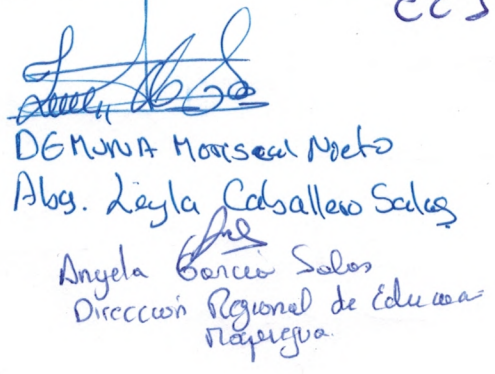 CCJ
DEMUNA Mariscal Nieto
Abg. Leyla Caballero Salas
Angela Garcia Salas
Direccion Regional de Educa-
Moquegua.